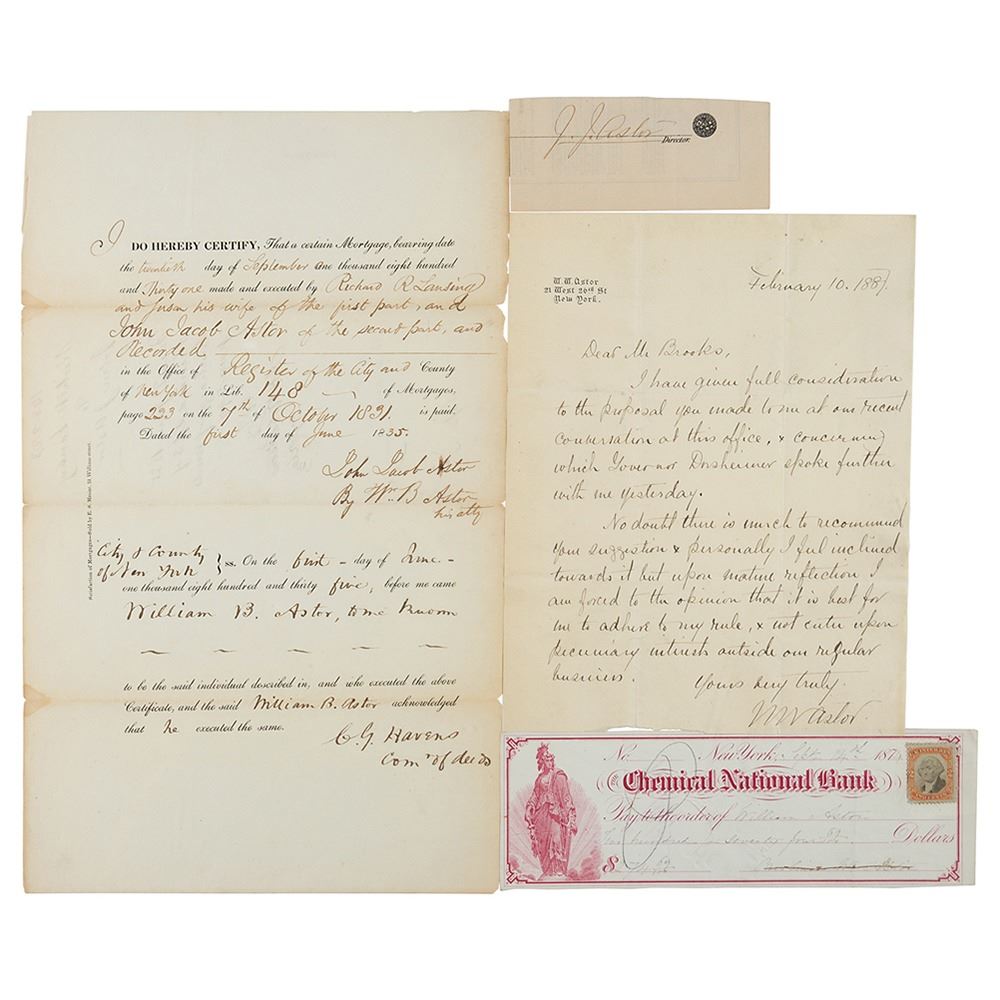 I DO HEREBY CERTIFY, That a certain Mortgage, bearing date
the twentieth day of September one thousand eight hundred
and Thirty one made and executed by Richard R Lansing
and Susan his wife of the first part, and
John Jacob Astor of the second part, and
Recorded
in the Office of Register of the City and County
of New York in Lib. 148 of Mortgages,
page 223 on the 7th of October 1831 is paid.
Dated the first day of June 1835.
John Jacob Astor
By Wm B Astor
his atty
Satisfaction of Mortgages—Sold by E. B.
City & County
of New York } ss. On the first - day of June -
one thousand eight hundred and thirty five, before me came
William B. Astor, to me known
to be the said individual described in, and who executed the above
Certificate, and the said William B. Astor acknowledged
that he executed the same.
C. Y. Havens
Comr of deeds
J. J. Astor
Director.
W. W. Astor
21 West 26th St
New York.
February 10. 1887.
Dear Mr Brooks,
I have given full consideration
to the proposal you made to me at our recent
conversation at this office, & concerning
which Governor Dorsheimer spoke further
with me yesterday.
No doubt there is much to recommend
your suggestion & personally I feel inclined
towards it but upon mature reflection I
am forced to the opinion that it is best for
me to adhere to my rule, & not enter upon
pecuniary interests outside our regular
business.
Yours very truly.
WW Astor.
No. New York, Sept 187
The Chemical National Bank
Pay to the order of William Astor
Two hundred Seventy four Dollars
$